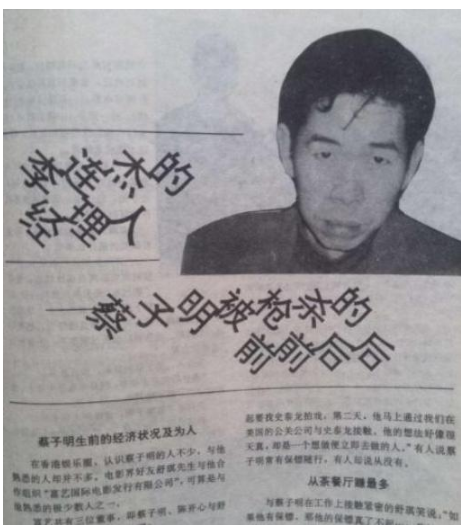 李连杰的
经理人
——蔡子明被枪杀的
前前后后
蔡子明生前的经济状况及为人
在香港娱乐圈,认识蔡子明的人不少,与他
熟悉的人却并不多。电影界好友舒琪先生与他合
作组织“富艺国际电影发行有限公司”,可算是与
他熟悉的极少数人之一。
富艺共有三位董事,即蔡子明、陈开心与舒
起要找史泰龙拍戏,第二天,他马上通过我们在
美国的公关公司与史泰龙接触。他的想法好像很
天真,却是一个想做便立即去做的人。”有人说蔡
子明常有保镖随行,有人却说从没有。
从茶餐厅赚最多
与蔡子明在工作上接触紧密的舒琪笑说,“如